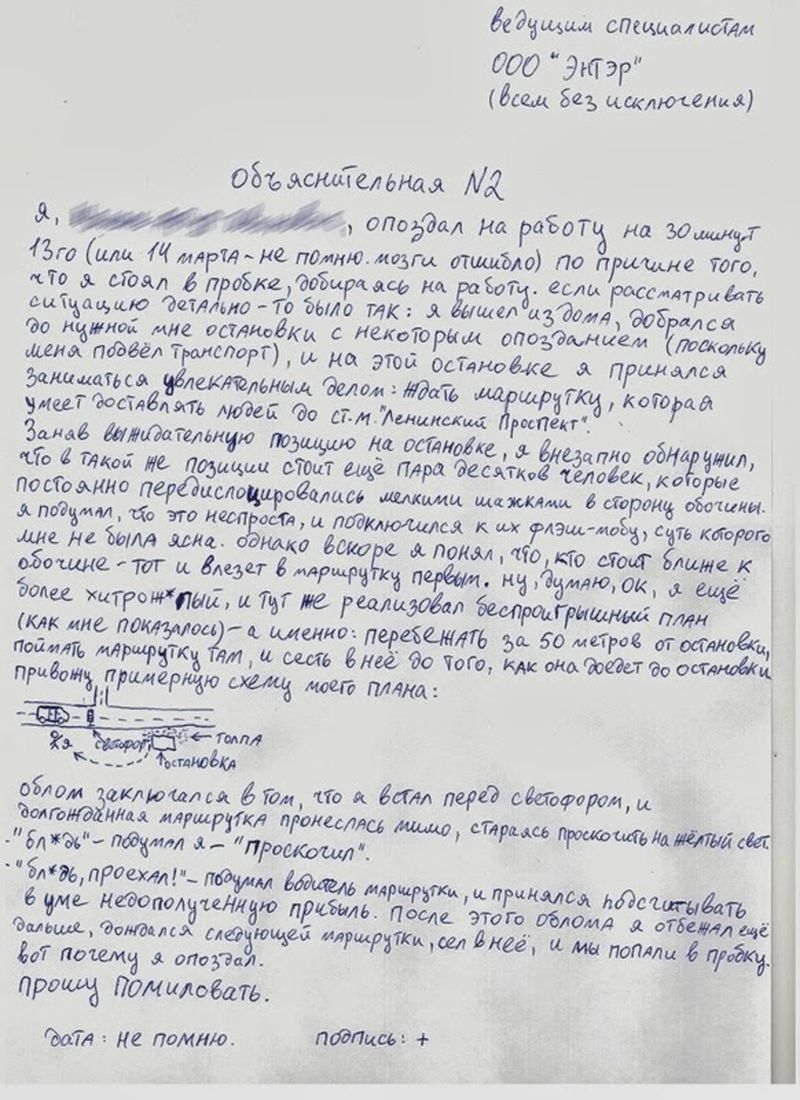 ведущим специалистам
ООО "Энтэр"
(всем без исключения)
Объяснительная N2
Я, , опоздал на работу на 30 минут
13го (или 14 марта - не помню. мозги отшибло) по причине того,
что я стоял в пробке, добираясь на работу. если рассматривать
ситуацию детально - то было так: я вышел из дома, добрался
до нужной мне остановки с некоторым опозданием (поскольку
меня подвёл транспорт), и на этой остановке я принялся
заниматься увлекательным делом: ждать маршрутку, которая
умеет доставлять людей до ст.м. "Ленинский Проспект".
Заняв выжидательную позицию на остановке, я внезапно обнаружил,
что в такой же позиции стоит ещё пара десятков человек, которые
постоянно передислоцировались мелкими шажками в сторону обочины.
я подумал, что это неспроста, и подключился к их флэш-мобу, суть которого
мне не была ясна. однако вскоре я понял, что, кто стоит ближе к
обочине - тот и влезет в маршрутку первым. ну, думаю, ок, я ещё
более хитрож*пый, и тут же реализовал беспроигрышный план
(как мне показалось) - а именно: перебежать за 50 метров от остановки,
поймать маршрутку там, и сесть в неё до того, как она доедет до остановки
привожу примерную схему моего плана:
я светофор толпа
остановка
облом заключался в том, что я встал перед светофором, и
долгожданная маршрутка пронеслась мимо, стараясь проскочить на жёлтый свет.
- "бл*дь" - подумал я - "проскочил".
- "бл*дь, проехал!" - подумал водитель маршрутки, и принялся подсчитывать
в уме недополученную прибыль. после этого облома я отбежал ещё
дальше, дождался следующей маршрутки, сел в неё, и мы попали в пробку.
вот почему я опоздал.
прошу помиловать.
дата: не помню. подпись: +